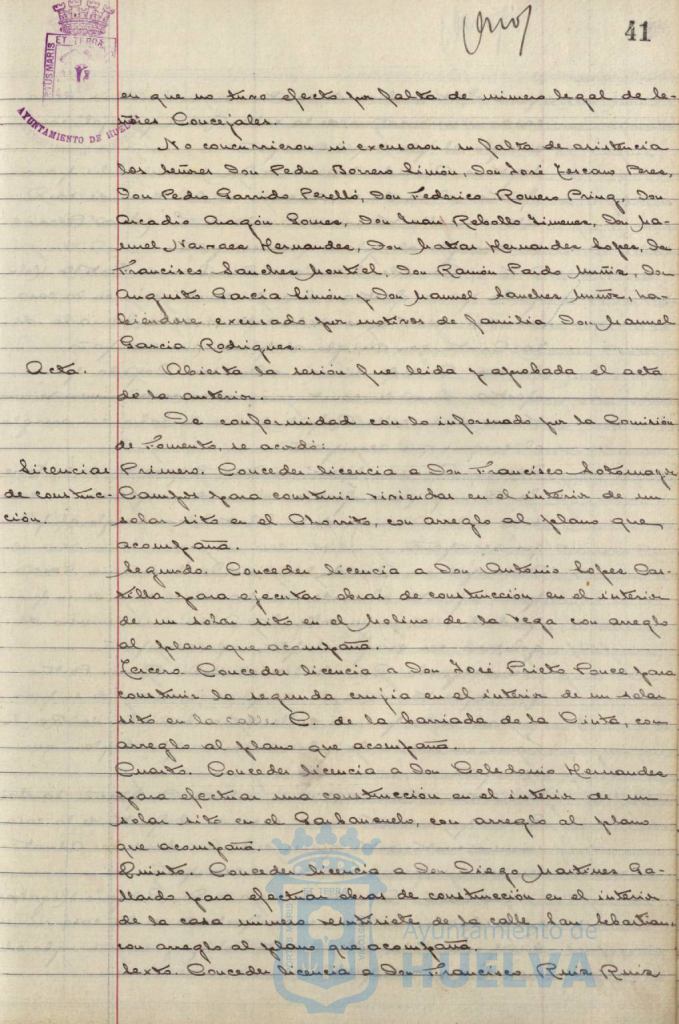 41
PORTUS MARIS
ET TERRAE
AYUNTAMIENTO DE HUELVA
en que no tuvo efecto por falta de número legal de Se-
ñores Concejales.
No concurrieron ni excusaron su falta de asistencia
los señores Don Pedro Borrero Limón, Don José Toscano Perez,
Don Pedro Garrido Perelló, Don Federico Romero Pring, Don
Arcadio Aragón Gomez, Don Juan Rebollo Jimenez, Don Ma-
nuel Narvaez Hernandez, Don Matias Hernandez Lopez, Don
Francisco Sanchez Montiel, Don Ramón Pardo Muñiz, Don
Augusto García Limón y Don Manuel Sanchez Muñoz, ha-
biéndose excusado por motivos de familia Don Manuel
García Rodriguez.
Acta. Abierta la sesión fue leida y aprobada el acta
de la anterior.
De conformidad con lo informado por la Comisión
de Fomento, se acordó:
Licencias Primero. Conceder licencia a Don Francisco Sotomayor
de construc- Campos para construir viviendas en el interior de un
ción. solar sito en el Chorrito, con arreglo al plano que
acompaña.
Segundo. Conceder licencia a Don Antonio Lopez Cas-
tilla para ejecutar obras de construcción en el interior
de un solar sito en el Molino de la Vega con arreglo
al plano que acompaña.
Tercero. Conceder licencia a Don José Prieto Ponce para
construir la segunda crujía en el interior de un solar
sito en la calle C. de la barriada de la Cinta, con
arreglo al plano que acompaña.
Cuarto. Conceder licencia a Don Celedonio Hernandez
para efectuar una construcción en el interior de un
solar sito en el Garbanzuelo, con arreglo al plano
que acompaña.
Quinto. Conceder licencia a Don Diego Martinez Ga-
llardo para efectuar obras de construcción en el interior
de la casa número veintisiete de la calle San Sebastian,
con arreglo al plano que acompaña.
Sexto. Conceder licencia a Don Francisco Ruiz Ruiz
Ayuntamiento de
HUELVA